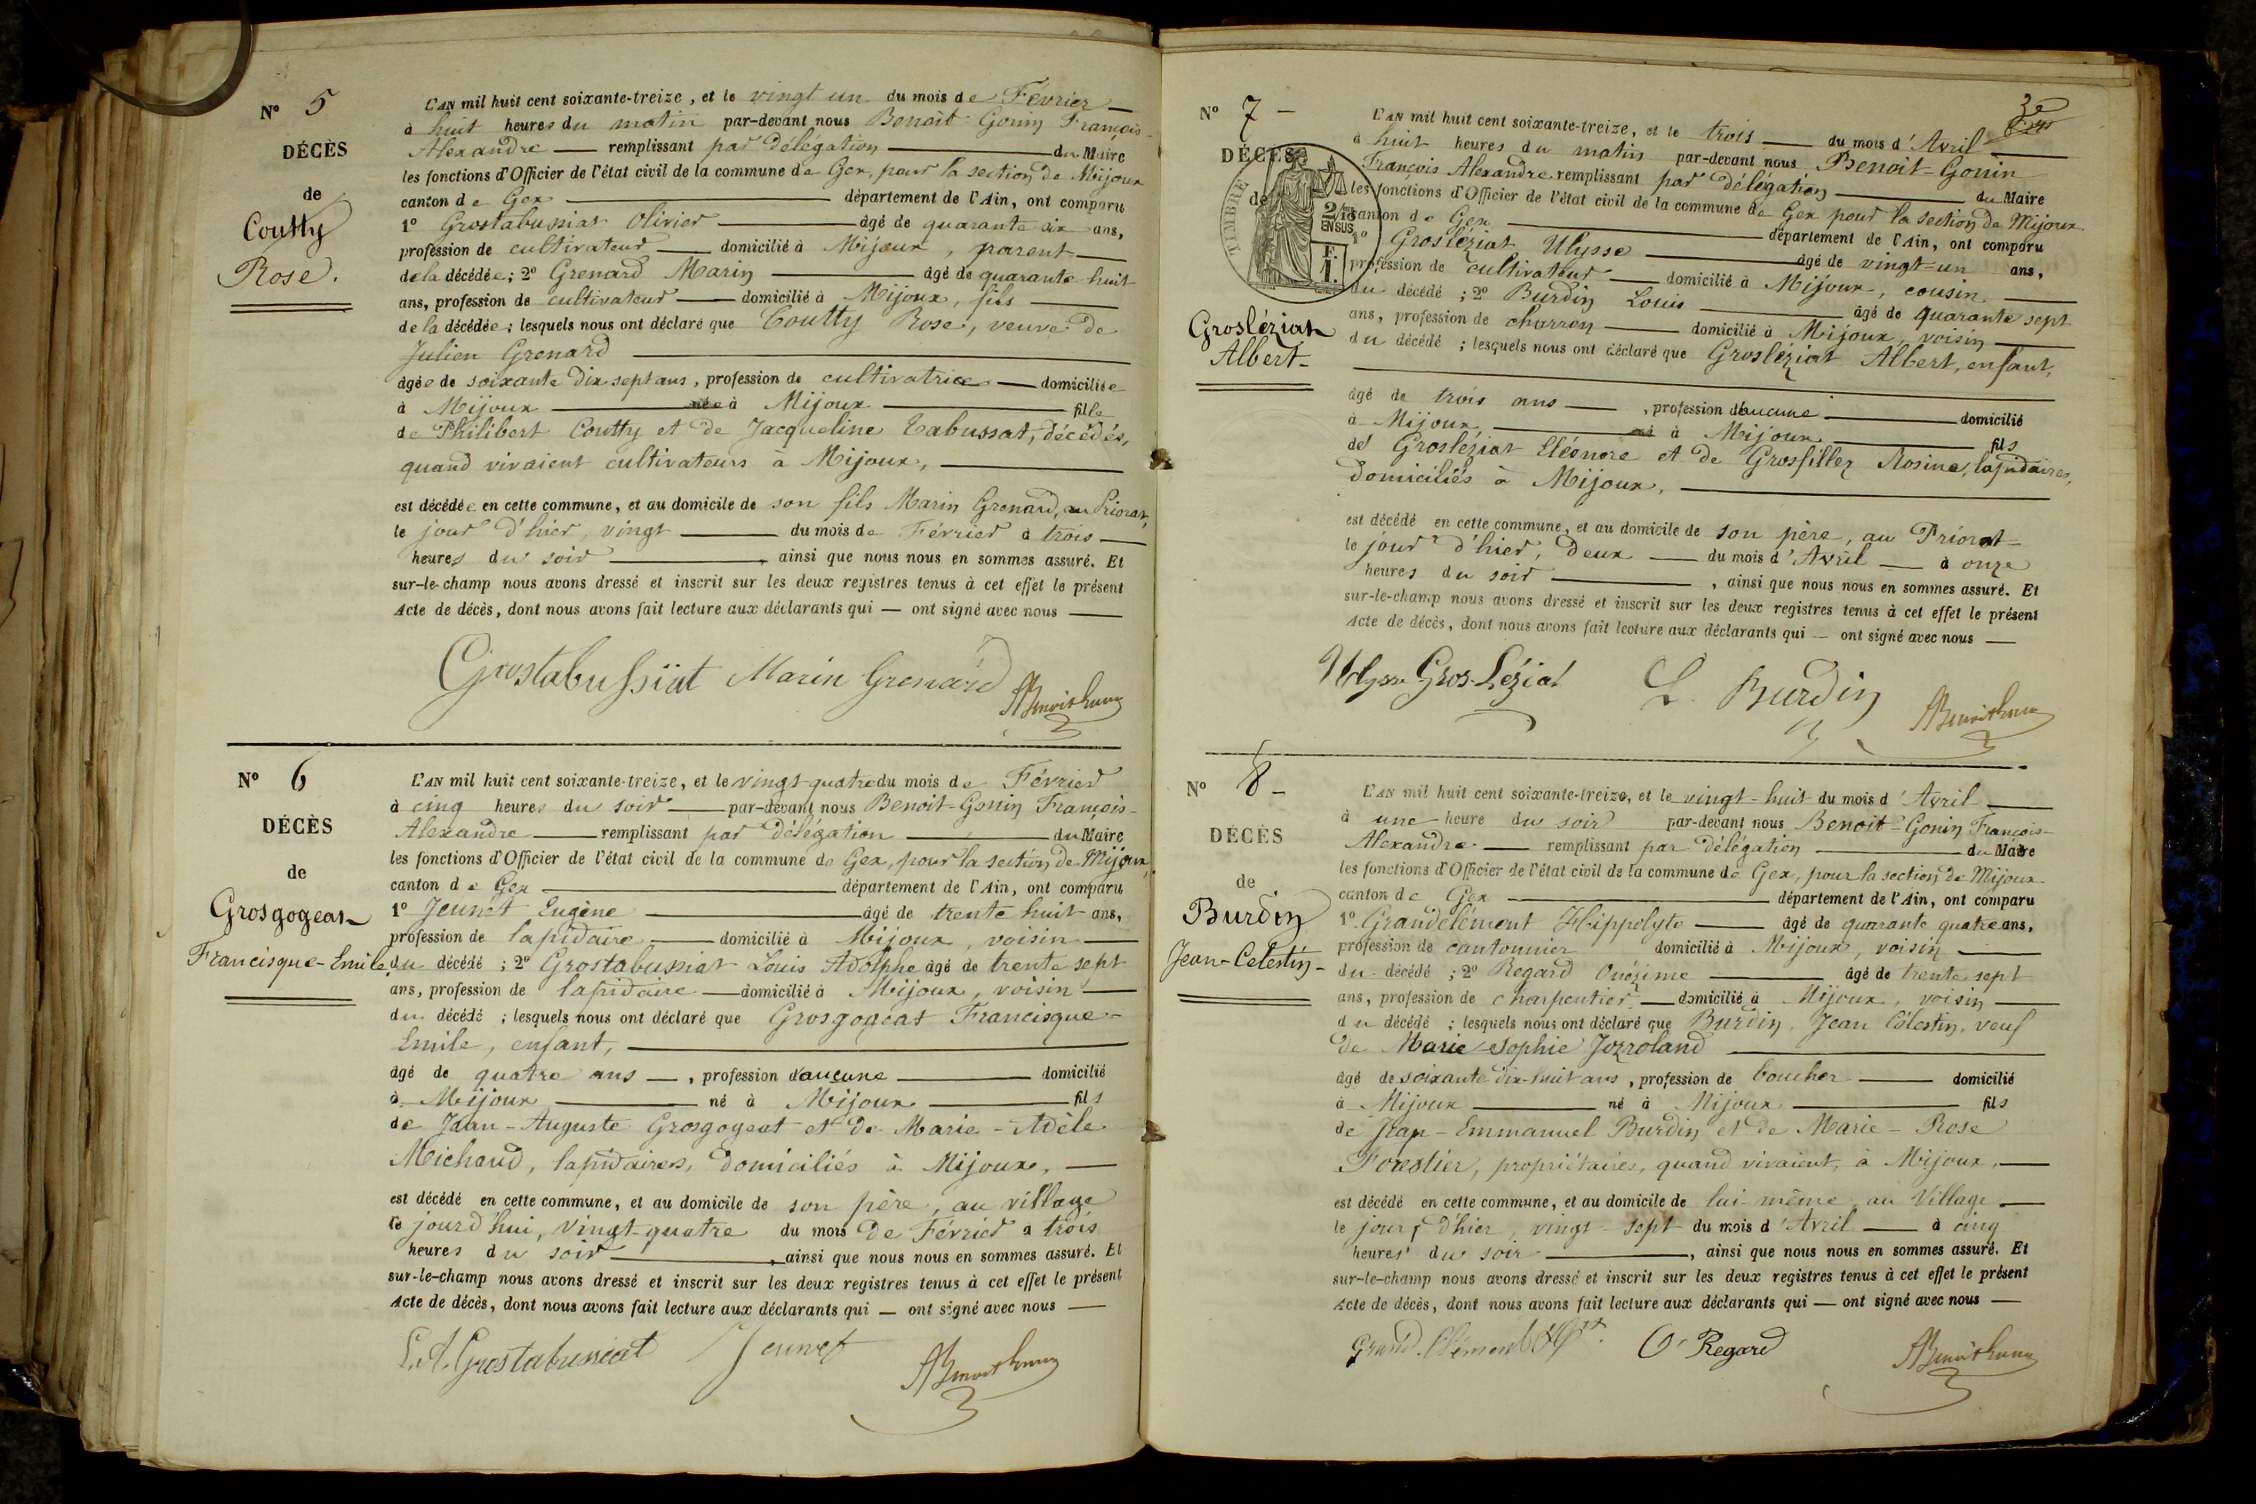 N° 5
DÉCÈS
de
Coutty
Rose.
L'AN mil huit cent soixante-treize, et le vingt un du mois de Février
à huit heures du matin par-devant nous Benoit Gonin François-
Alexandre remplissant par délégation du Maire
les fonctions d'Officier de l'état civil de la commune de Gex, pour la section de Mijoux
canton de Gex département de l'Ain, ont comparu
1° Grostabussiat Olivier âgé de quarante six ans,
profession de cultivateur domicilié à Mijoux, parent
de la décédée; 2° Grenard Marin âgé de quarante huit
ans, profession de cultivateur domicilié à Mijoux, fils
de la décédée; lesquels nous ont déclaré que Coutty Rose, veuve de
Julien Grenard
âgée de soixante dix sept ans, profession de cultivatrice domiciliée
à Mijoux née à Mijoux fille
de Philibert Coutty et de Jacqueline Tabussat, décédés,
quand vivaient cultivateurs à Mijoux,
est décédée en cette commune, et au domicile de son fils Marin Grenard, au Priorat,
le jour d'hier, vingt du mois de Février à trois
heures du soir, ainsi que nous nous en sommes assuré. Et
sur-le-champ nous avons dressé et inscrit sur les deux registres tenus à cet effet le présent
Acte de décès, dont nous avons fait lecture aux déclarants qui — ont signé avec nous
Grostabussiat Marin Grenard ABenoitGonin
N° 6
DÉCÈS
de
Grosgogeat
Francisque-Emile
L'AN mil huit cent soixante-treize, et le vingt-quatre du mois de Février
à cinq heures du soir par-devant nous Benoit-Gonin François-
Alexandre remplissant par délégation du Maire
les fonctions d'Officier de l'état civil de la commune de Gex, pour la section de Mijoux,
canton de Gex département de l'Ain, ont comparu
1° Jeunet Eugène âgé de trente huit ans,
profession de lapidaire domicilié à Mijoux, voisin
du décédé; 2° Grostabussiat Louis Adolphe âgé de trente sept
ans, profession de lapidaire domicilié à Mijoux, voisin
du décédé; lesquels nous ont déclaré que Grosgogeat Francisque-
Emile, enfant,
âgé de quatre ans, profession d'aucune domicilié
à Mijoux né à Mijoux fils
de Jean-Auguste Grosgogeat et de Marie-Adèle
Michaud, lapidaires, domiciliés à Mijoux,
est décédé en cette commune, et au domicile de son père, au village
le jourd'hui, vingt-quatre du mois de Février à trois
heures du soir, ainsi que nous nous en sommes assuré. Et
sur-le-champ nous avons dressé et inscrit sur les deux registres tenus à cet effet le présent
Acte de décès, dont nous avons fait lecture aux déclarants qui — ont signé avec nous
L.A. Grostabussiat Jeunet ABenoitGonin
3e
N° 7
DÉCÈS
de
TIMBRE
2/10
EN SUS
F.
1.
Grosléziat
Albert
L'AN mil huit cent soixante-treize, et le trois du mois d'Avril
à huit heures du matin par-devant nous Benoit-Gonin
François Alexandre remplissant par délégation du Maire
les fonctions d'Officier de l'état civil de la commune de Gex pour la section de Mijoux
canton de Gex département de l'Ain, ont comparu
1° Grosléziat Ulysse âgé de vingt-un ans,
profession de cultivateur domicilié à Mijoux, cousin
du décédé; 2° Burdin Louis âgé de quarante sept
ans, profession de charron domicilié à Mijoux, voisin
du décédé; lesquels nous ont déclaré que Grosléziat Albert, enfant,
âgé de trois ans, profession d'aucune domicilié
à Mijoux, né à Mijoux fils
de Grosléziat Eléonore et de Grosfillex Rosine, lapidaires,
domiciliés à Mijoux,
est décédé en cette commune, et au domicile de son père, au Priorat
le jour d'hier, deux du mois d'Avril à onze
heures du soir, ainsi que nous nous en sommes assuré. Et
sur-le-champ nous avons dressé et inscrit sur les deux registres tenus à cet effet le présent
Acte de décès, dont nous avons fait lecture aux déclarants qui — ont signé avec nous
Ulysse Gros-Léziat L. Burdin ABenoitGonin
N° 8
DÉCÈS
de
Burdin
Jean-Celestin
L'AN mil huit cent soixante-treize, et le vingt-huit du mois d'Avril
à une heure du soir par-devant nous Benoit-Gonin François-
Alexandre remplissant par délégation du Maire
les fonctions d'Officier de l'état civil de la commune de Gex, pour la section de Mijoux
canton de Gex département de l'Ain, ont comparu
1° Grandclément Hippolyte âgé de quarante quatre ans,
profession de cantonnier domicilié à Mijoux, voisin
du décédé; 2° Regard Onézime âgé de trente sept
ans, profession de charpentier domicilié à Mijoux, voisin
du décédé; lesquels nous ont déclaré que Burdin, Jean Célestin, veuf
de Marie-Sophie Jozroland
âgé de soixante dix-huit ans, profession de boucher domicilié
à Mijoux né à Mijoux fils
de Jean-Emmanuel Burdin et de Marie-Rose
Forestier, propriétaires, quand vivaient, à Mijoux,
est décédé en cette commune, et au domicile de lui même, au Village
le jour d'hier, vingt-sept du mois d'Avril à cinq
heures du soir, ainsi que nous nous en sommes assuré. Et
sur-le-champ nous avons dressé et inscrit sur les deux registres tenus à cet effet le présent
Acte de décès, dont nous avons fait lecture aux déclarants qui — ont signé avec nous
Grand-Clément O. Regard ABenoitGonin